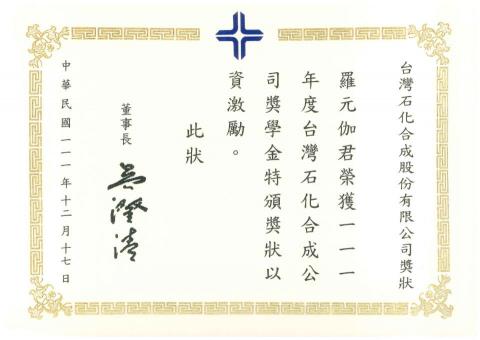 台灣石化合成股份有限公司獎狀
羅元伽君榮獲一一一
年度台灣石化合成公
司獎學金特頒獎狀以
資激勵。
此狀
董事長
吳澄清
中華民國一一一年十二月十七日